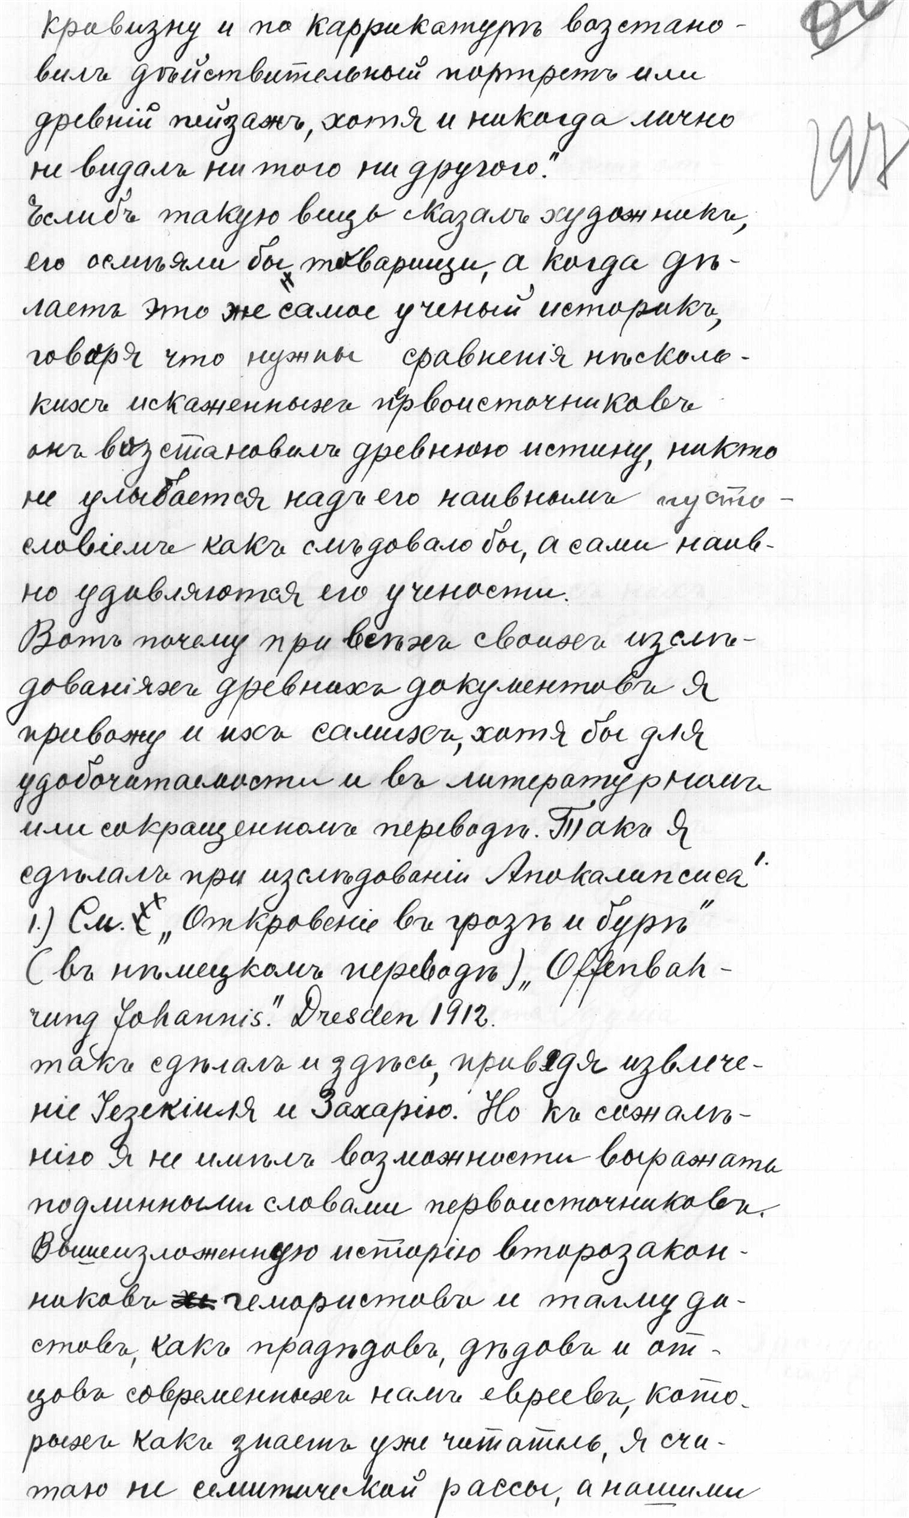 кривизну и по каррикатурѣ возстано-
197
вилъ дѣйствительный портретъ или
древній пейзажъ, хотя и никогда лично
не видалъ ни того ни другого".
Еслибъ такую вещь сказалъ художникъ,
его осмѣяли бы товарищи, а когда дѣ-
лаетъ это же самое ученый историкъ,
говоря что нужны сравненія нѣсколь-
кихъ искаженныхъ первоисточниковъ
онъ возстановилъ древнюю истину, никто
не улыбается надъ его наивнымъ пусто-
словіемъ какъ слѣдовало бы, а сами наив-
но удивляются его учености.
Вотъ почему при всѣхъ своихъ изслѣ-
дованіяхъ древнихъ документовъ я
привожу и ихъ самихъ, хотя бы для
удобочитаемости и въ литературномъ
или сокращенномъ переводѣ. Такъ я
сдѣлалъ при изслѣдованіи Апокалипсиса 1.
1.) См. "Откровеніе въ грозѣ и бурѣ"
(въ нѣмецкомъ переводѣ) „Offenbah-
rung Johannis". Dresden 1912.
такъ сдѣлалъ и здѣсь, приведя извлече-
ніе Іезекіиля и Захарію. Но къ сожалѣ-
нію я не имѣлъ возможности выражать
подлинными словами первоисточниковъ.
Вышеизложенную исторію второзакон-
никовъ гемаристовъ и талмуди-
стовъ, какъ прадѣдовъ, дѣдовъ и от-
цовъ современныхъ намъ евреевъ, кото-
рыхъ какъ знаетъ уже читатель, я счи-
таю не семитической рассы, а нашими